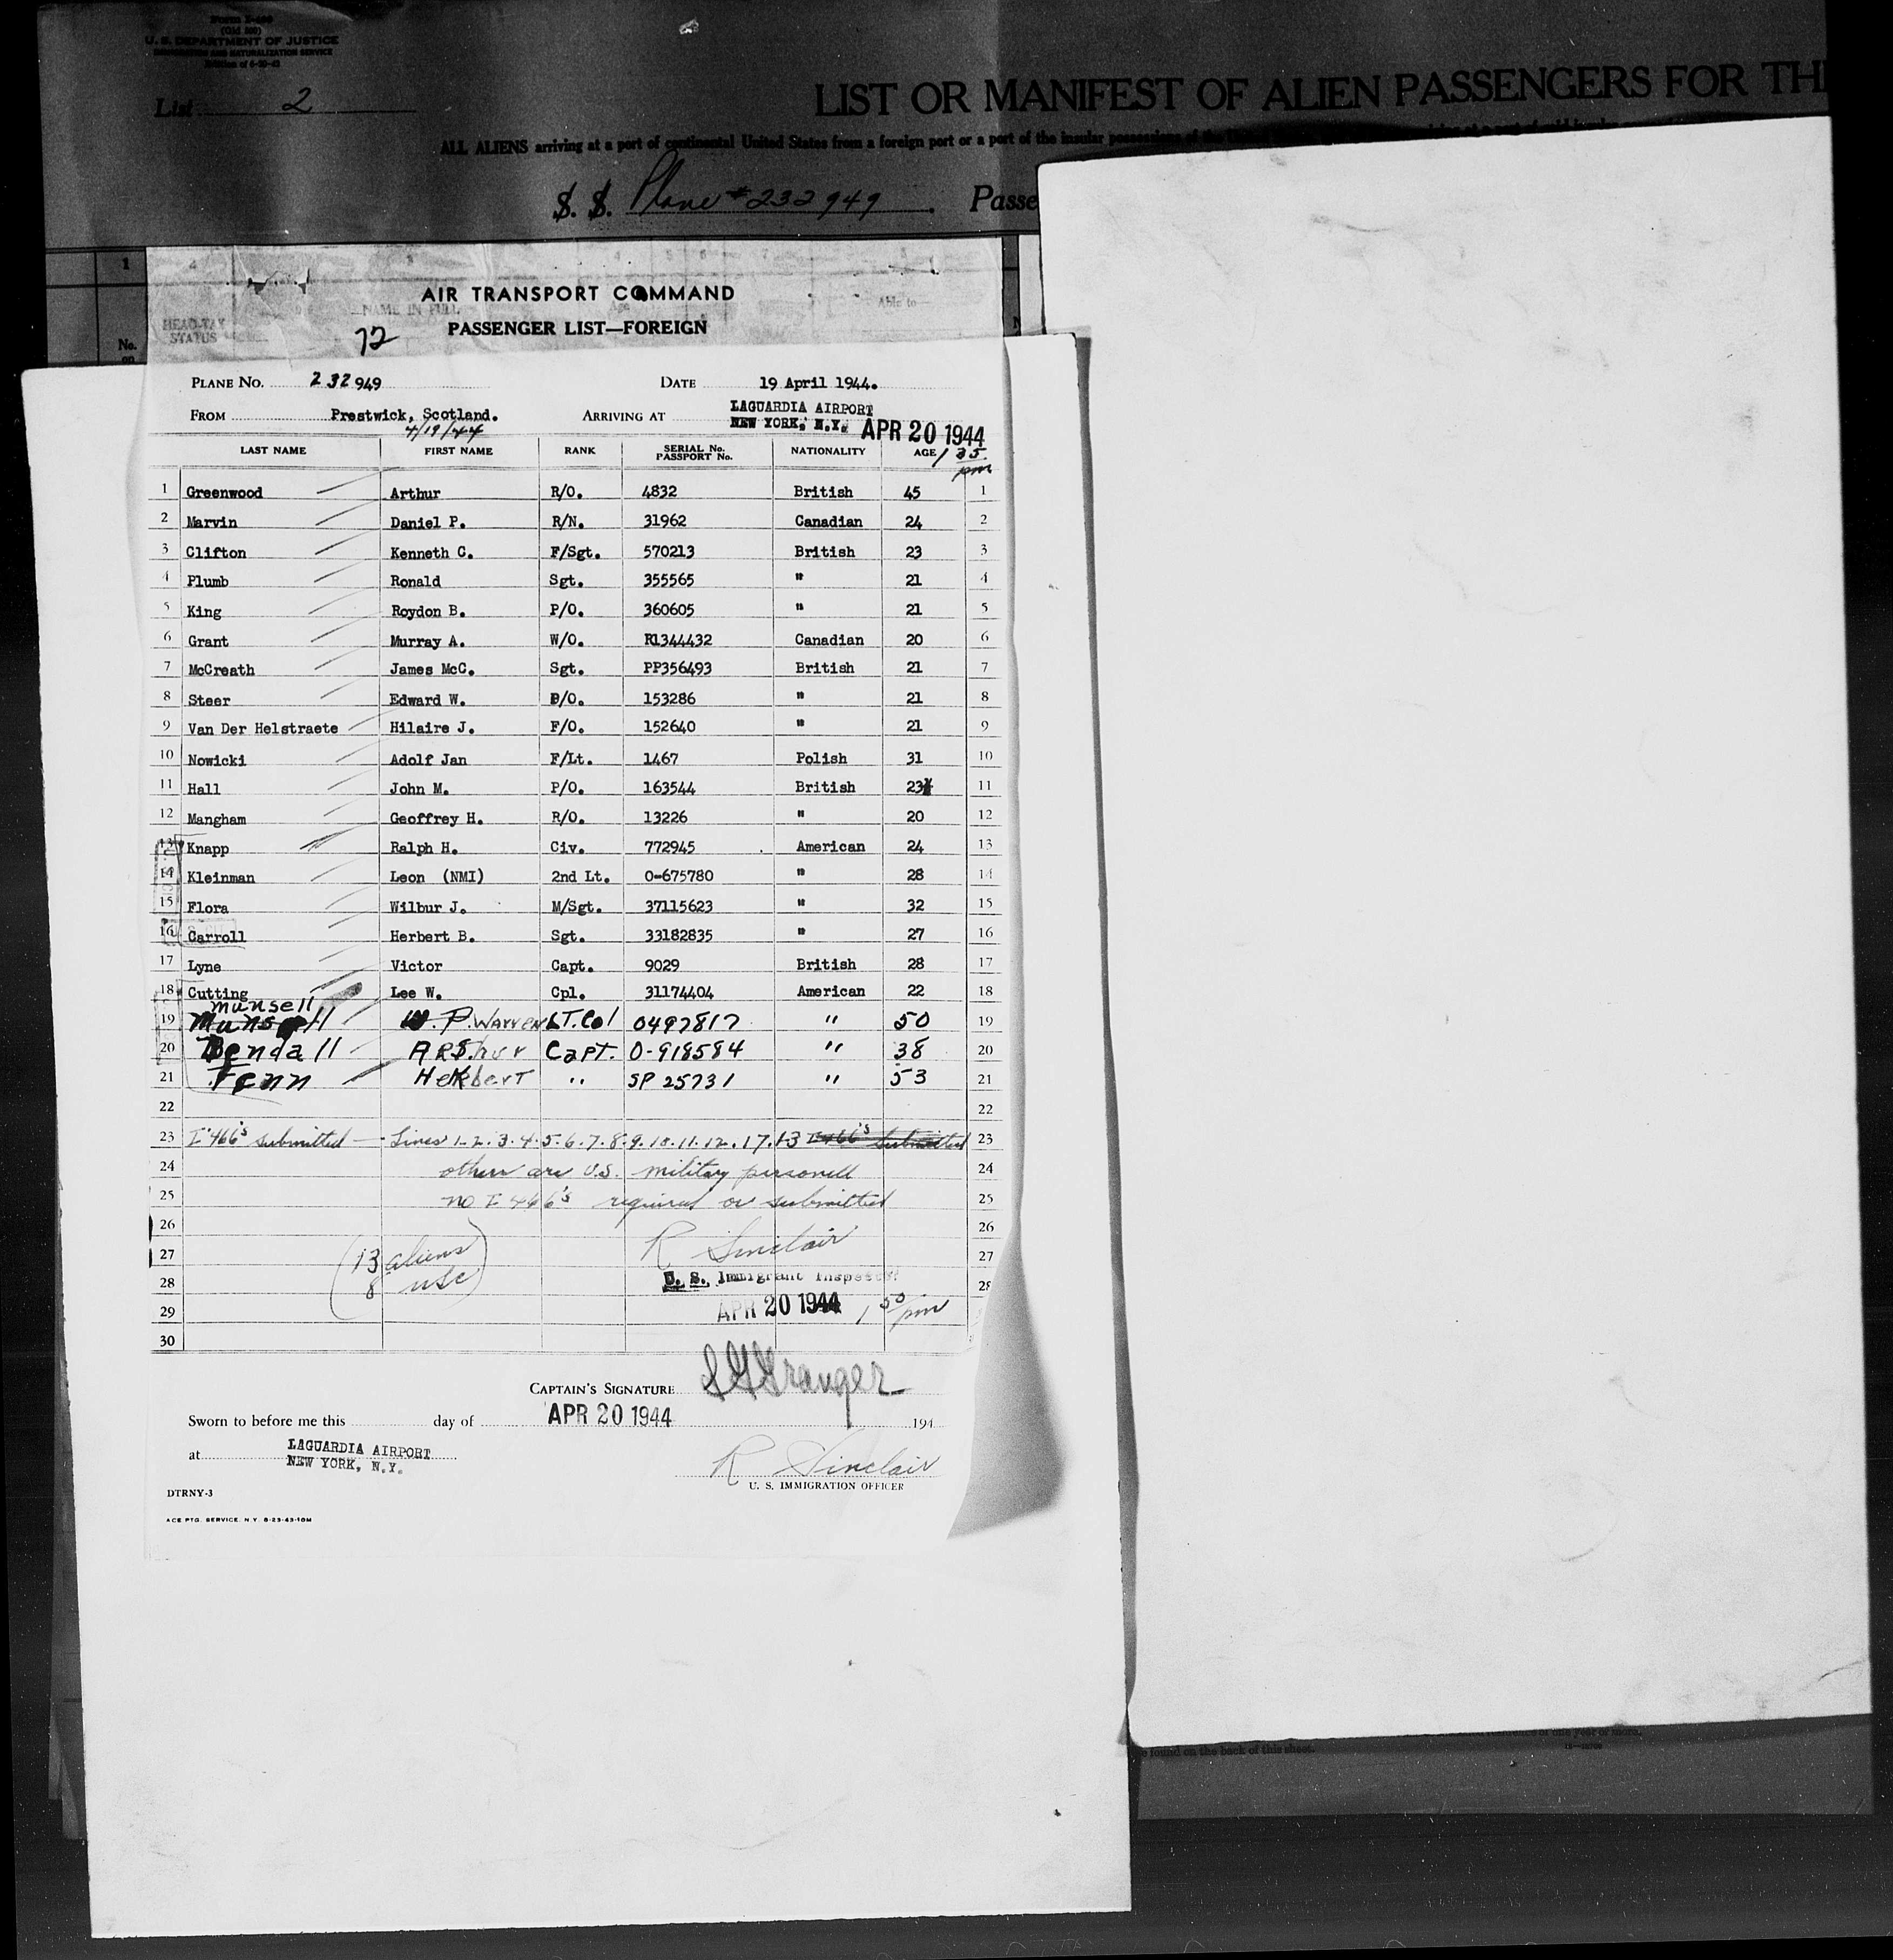 U. S. DEPARTMENT OF JUSTICE
IMMIGRATION AND NATURALIZATION SERVICE
List 2
LIST OR MANIFEST OF ALIEN PASSENGERS FOR TH
ALL ALIENS arriving at a port of continental United States from a foreign port or a port of the insular possessions of the
S. S. Plane # 232949. Passe
AIR TRANSPORT COMMAND
NAME IN FULL Age Able to
HEAD-TAX STATUS
72 PASSENGER LIST—FOREIGN
No. on
PLANE NO. 232949 DATE 19 April 1944.
FROM Prestwick, Scotland. ARRIVING AT LAGUARDIA AIRPORT
4/19/44 NEW YORK, N.Y. APR 20 1944
LAST NAME FIRST NAME RANK SERIAL No. PASSPORT No. NATIONALITY AGE 1 35 pm
1 Greenwood Arthur R/O. 4832 British 45 1
2 Marvin Daniel P. R/N. 31962 Canadian 24 2
3 Clifton Kenneth C. F/Sgt. 570213 British 23 3
4 Plumb Ronald Sgt. 355565 " 21 4
5 King Roydon B. P/O. 360605 " 21 5
6 Grant Murray A. W/O. R1344432 Canadian 20 6
7 McCreath James McC. Sgt. PP356493 British 21 7
8 Steer Edward W. P/O. 153286 " 21 8
9 Van Der Helstraete Hilaire J. F/O. 152640 " 21 9
10 Nowicki Adolf Jan F/Lt. 1467 Polish 31 10
11 Hall John M. P/O. 163544 British 23 11
12 Mangham Geoffrey H. R/O. 13226 " 20 12
13 Knapp Ralph H. Civ. 772945 American 24 13
14 Kleinman Leon (NMI) 2nd Lt. O-675780 " 28 14
15 Flora Wilbur J. M/Sgt. 37115623 " 32 15
16 Carroll Herbert B. Sgt. 33182835 " 27 16
17 Lyne Victor Capt. 9029 British 28 17
18 Cutting Lee W. Cpl. 31174404 American 22 18
munsell
19 Munsell W. P. Warren LT. Col 0497817 " 50 19
20 Bendall Arthur Capt. O-918584 " 38 20
21 Fenn Herbert " SP 25731 " 53 21
22 22
23 I 466's submitted — Lines 1.2.3.4.5.6.7.8.9.10.11.12.17.13 I 466's submitted 23
24 others are U.S. military personell 24
25 no I 466's required or submitted 25
26 R Sinclair 26
27 (13 aliens 27
28 8 usc) U. S. Immigrant Inspector 28
29 APR 20 1944 1 50 pm
30
CAPTAIN'S SIGNATURE S G Granger
Sworn to before me this day of APR 20 1944 194
at LAGUARDIA AIRPORT
NEW YORK, N.Y.
R Sinclair
U. S. IMMIGRATION OFFICER
DTRNY-3
ACE PTG. SERVICE. N.Y. 8-23-43-10M
found on the back of this sheet.